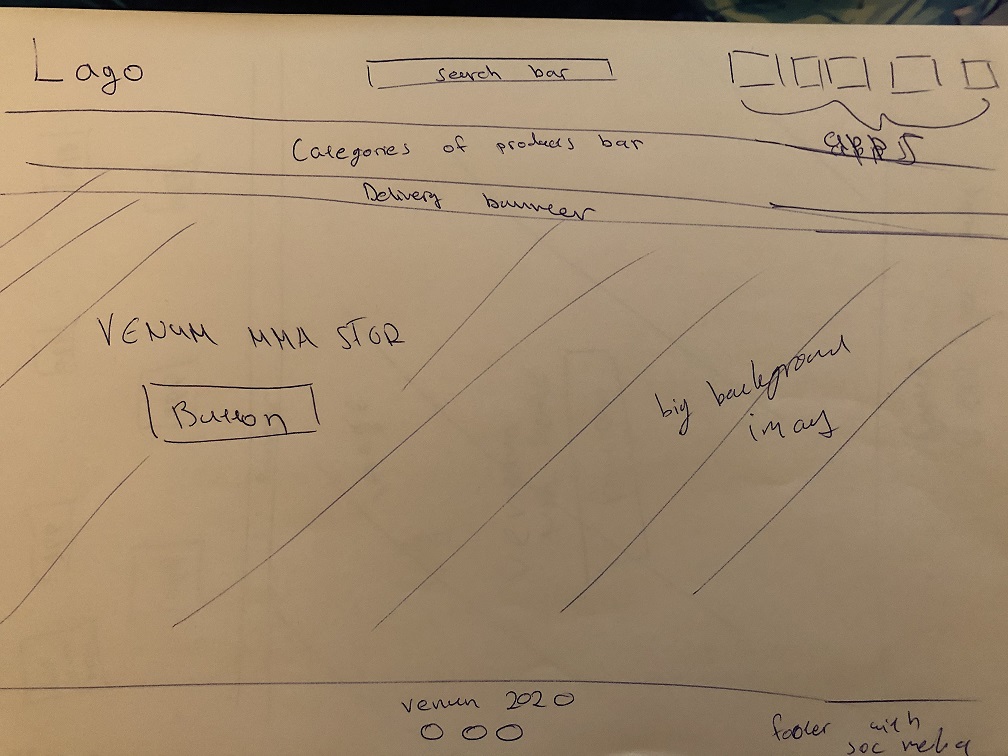 Logo
search bar
Categories of products bar
Delivery banneer
VENUM MMA STOR
Button
big background
imag
venum 2020
footer with
soc media